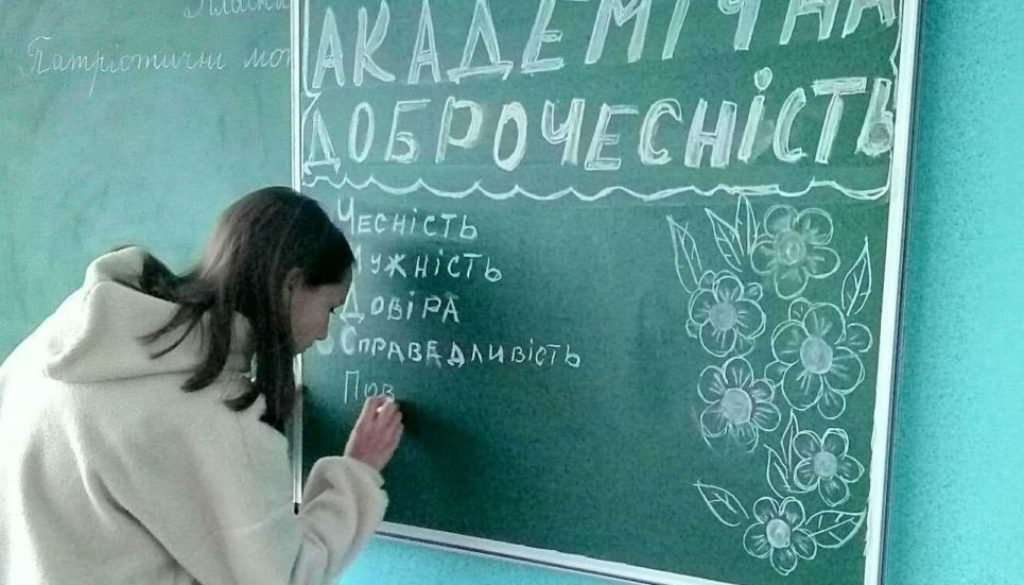 Патріотичні
АКАДЕМІЧНА
ДОБРОЧЕСНІСТЬ
Чесність
Мужність
Довіра
Справедливість
Пов